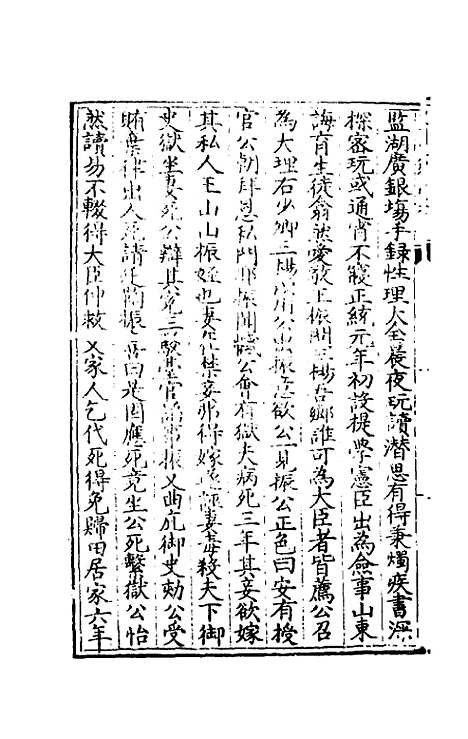 監湖廣銀塲手録性理大全晨夜玩讀潜思有得秉燭疾書深
探密玩或通宵不寢正統元年初設提學憲臣出為僉事山東
誨育生徒翁然愛敬王振問三楊吾鄉誰可為大臣者皆薦公召
為大理右少卿三楊以用公出振意欲公一見振公正色曰安有授
官公朝拜恩私門邪振聞公會有獄夫病死三年其妾欲嫁
其私人王山山振姪也妻不禁妾弗得嫁誣妻毒殺夫下御
史獄坐妻死公辯其寃三官振又曲庇御史劾公受
賄棄律出人死請廷問振曰是固應死竟生公死繫獄公怡
然讀易不輟得大臣伸救又家人乞代死得免歸田居家六年